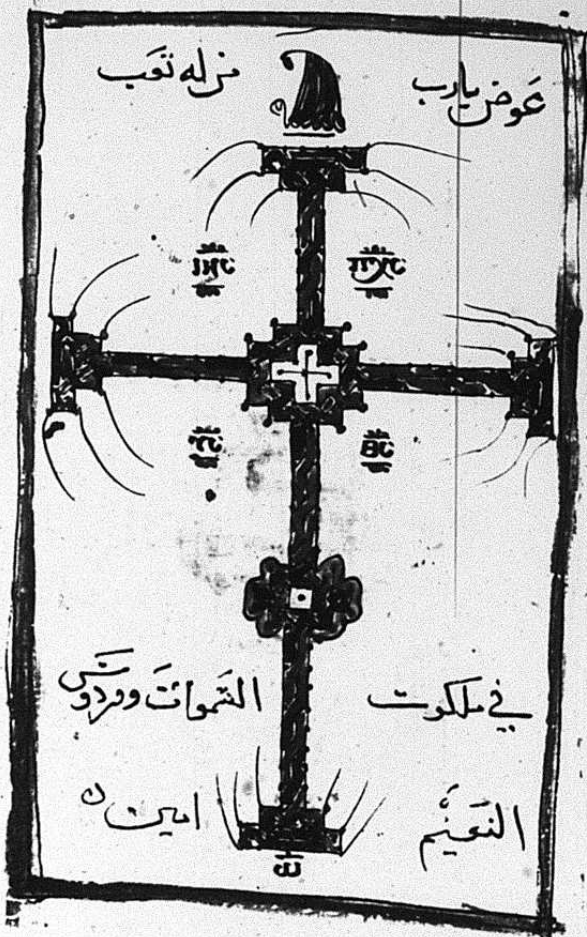 عوض يارب من له تعب
ⲓⲏⲥ ⲡⲭⲥ
ⲩⲥ ⲑⲥ
في ملكوت السموات وفردوس
النعيم امين
ⲱ